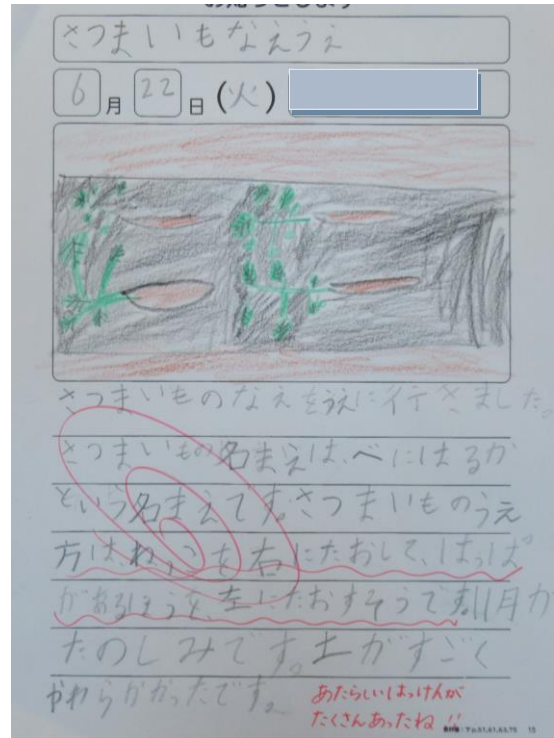 さつまいもなえうえ
6月22日(火)
さつまいものなえをうえに行きました。
さつまいもの名まえは、べにはるか
という名まえです。さつまいものうえ
方は、ねっこを右にたおして、はっぱ
があるほうを、左にたおすそうです。11月が
たのしみです。土がすごく
やわらかかったです。
あたらしいはっけんが
たくさんあったね!!
15